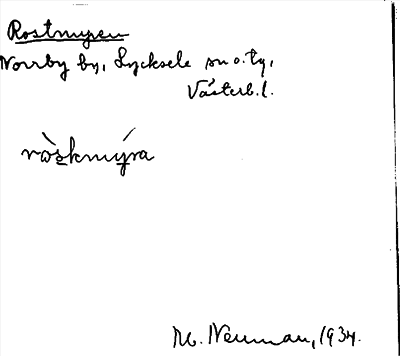 Rostmyren
Norrby by, Lycksele sn o. tg,
Västerb. l.
ròskmýra
M. Neuman, 1934.